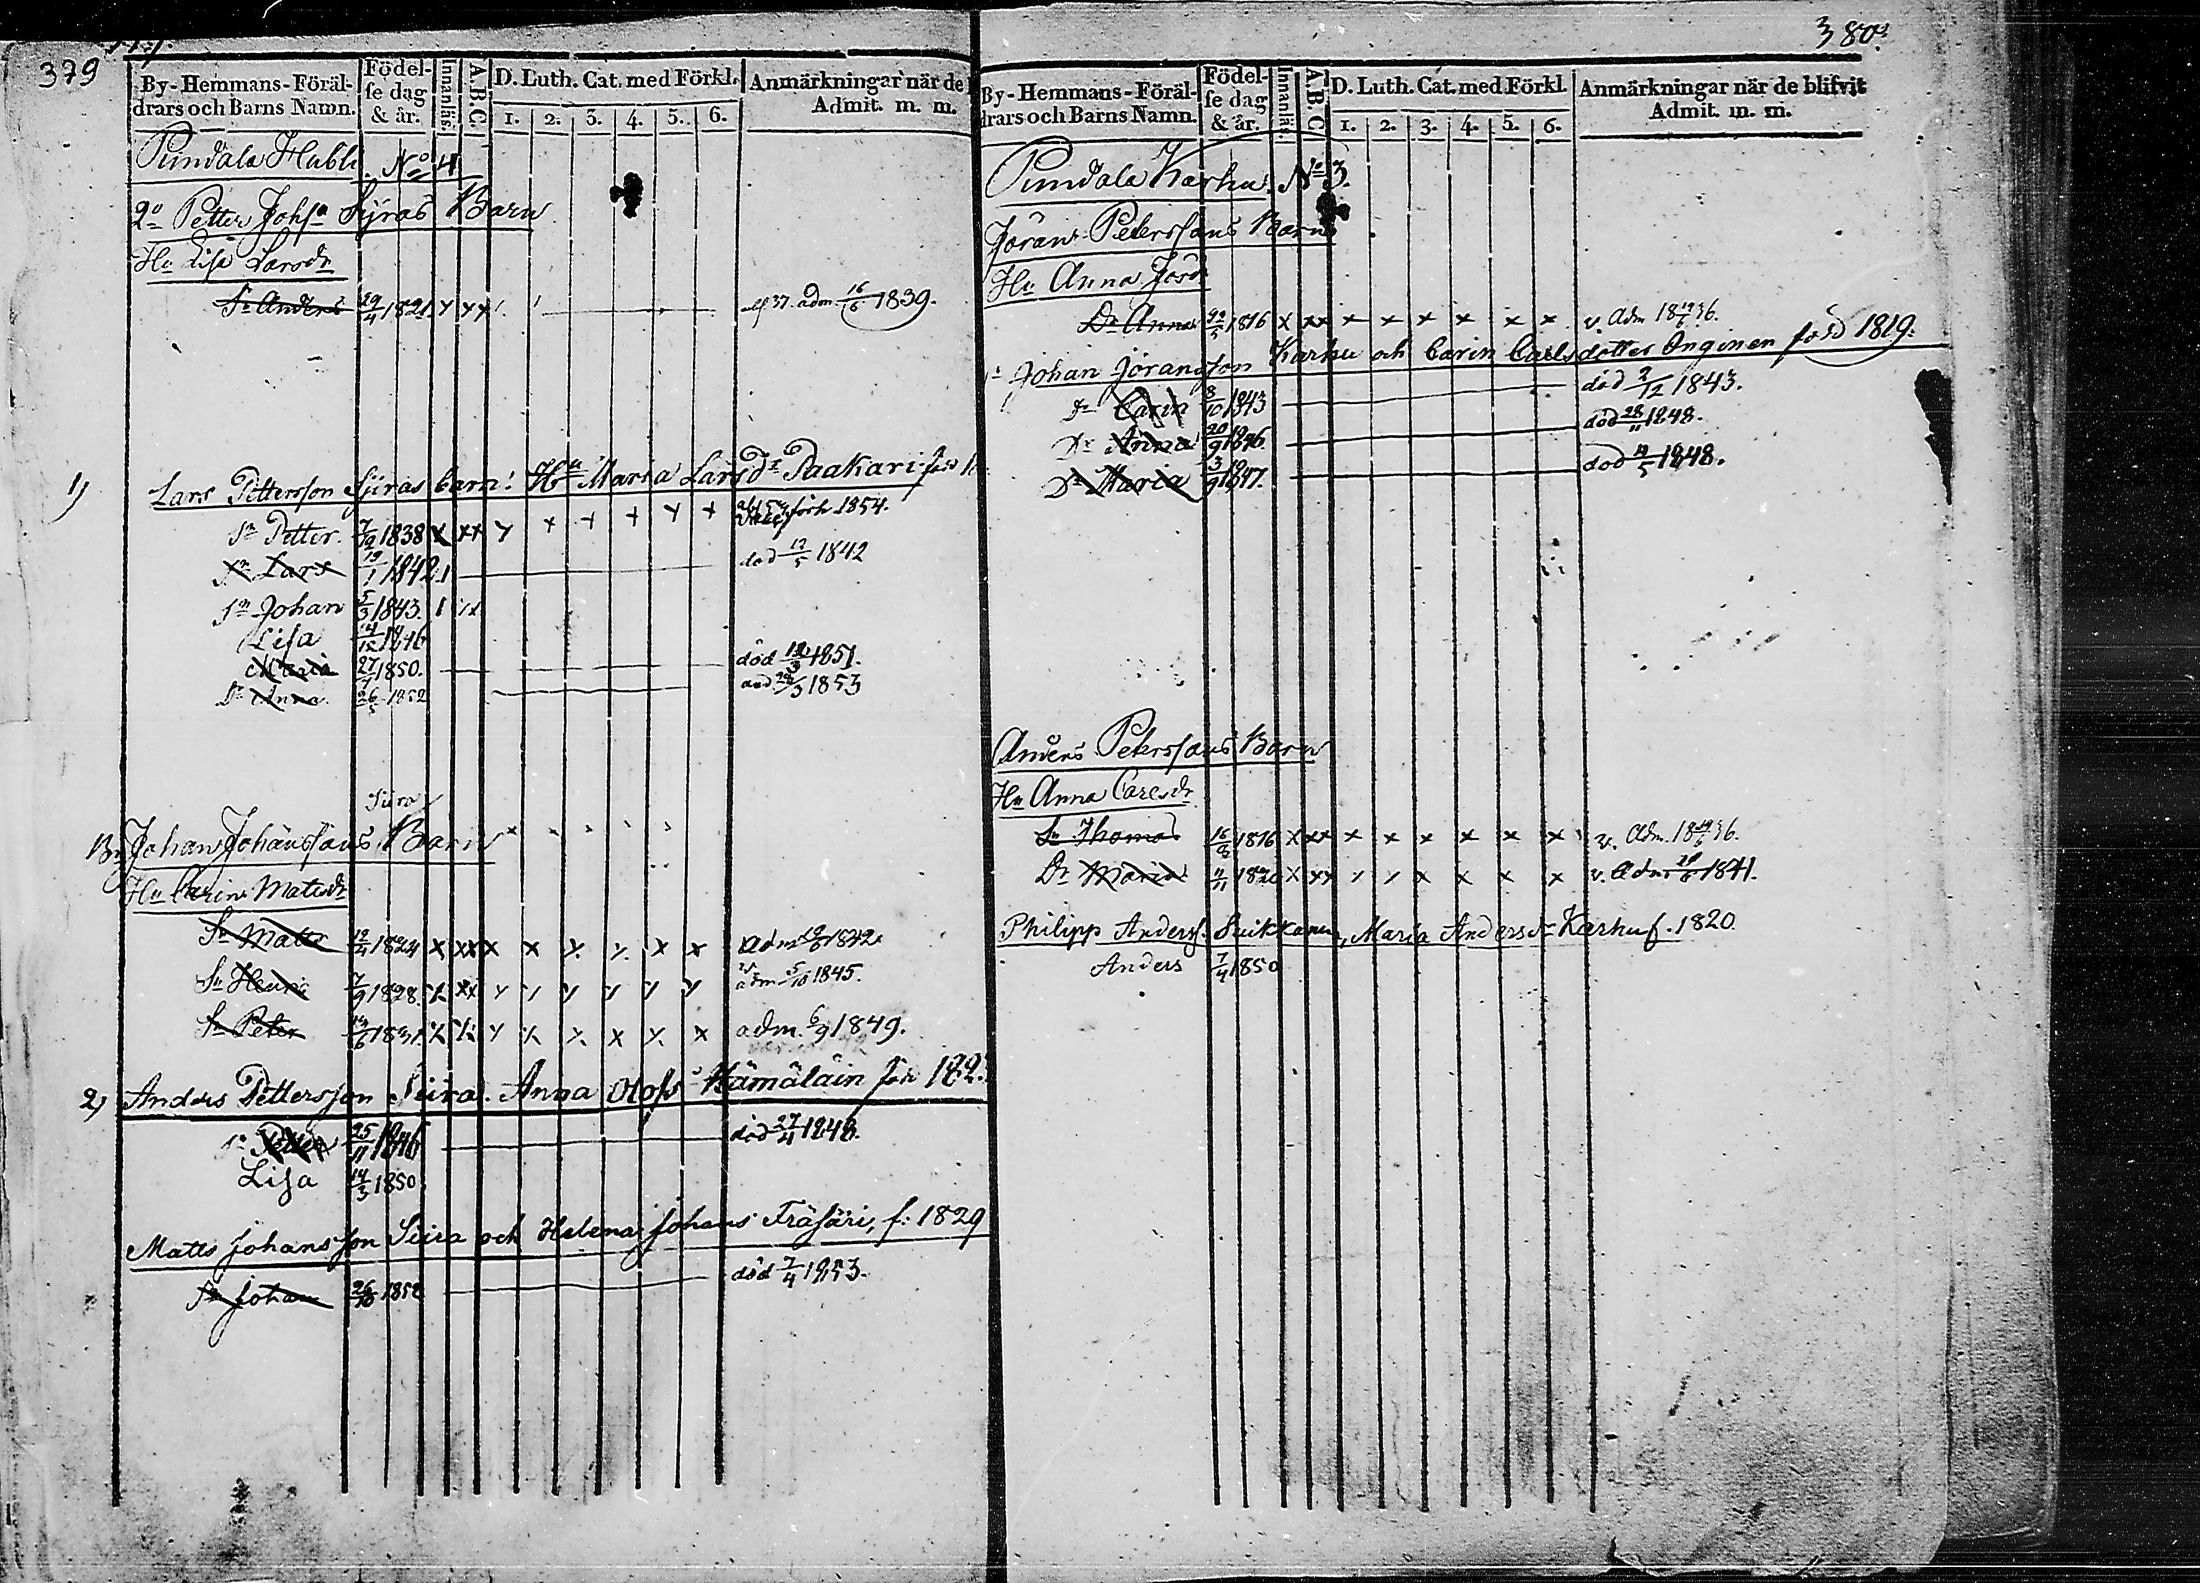 379
By-Hemmans-Föräl-
drars och Barns Namn.
Födel-
se dag
& år.
Innanläs.
A.B.C.
D. Luth. Cat. med Förkl.
1. 2. 3. 4. 5. 6.
Anmärkningar när de
Admit. m. m.
Pundala Hubli No 4
2o Petter Johs Syras Barn
Hu Lisa Larsdr
Sn Anders 29/4 1821 adm. 16/6 1839.
1) Lars Pettersson Syras barn: Hu Maria Larsdr Paakari född
Sn Petter. 7/12 1838 x xx x x x x x x förh 1854.
Sn Lars 19/1 1842 död 17/5 1842
Sn Johan 5/3 1843
Lisa 14/12 1846
Maria 27/7 1850. död 12/3 1851.
Dr Anna 26/5 1852 död 1853
Siira
Johan Johanssons Barn
Hu Carin Matsdr
Sn Matts 1824 x xx x x x x x x adm 1842
Sn Henric 7/9 1828. adm 5/10 1845.
Sn Peter 1831. adm. 6/9 1849.
2) Anders Pettersson Siira. Anna Olofs Hämäläin född 182
Sn Petter 25/11 1846 död 27/4 1848.
Lisa 14/3 1850
Matts Johansson Siira och Helena Johans Träsäri, f. 1829
Sn Johan 26/10 1852 död 7/4 1853.
380.
By-Hemmans-Föräl-
drars och Barns Namn.
Födel-
se dag
& år.
Innanläs.
A.B.C
D. Luth. Cat. med Förkl.
1. 2. 3. 4. 5. 6.
Anmärkningar när de blifvit
Admit. m. m.
Pundala Karhu. No 3.
Jöran Peterssons Barn
Hu Anna Jörsdr
Dr Anna 1816 x xx x x x x x x v. Adm 18 19/6 36.
Johan Jöransson Karhu och Carin Carlsdotter Onginen född 1819.
Dr Carin 8/10 1843 död 2/12 1843.
Dr Anna 20/9 1846. död 28/11 1848.
Dr Maria 3/9 1847. död 4/5 1848.
Anders Peterssons Barn
Hu Anna Carlsdr
Sn Thomas 1816 x xx x x x x x x v. Adm. 18 19/6 36.
Dr Maria 11/11 1820 x xx x x x x x x v. Adm 1841.
Philipp Anderss. Suikkanen, Maria Andersdr Karhu f. 1820.
Anders 7/4 1850